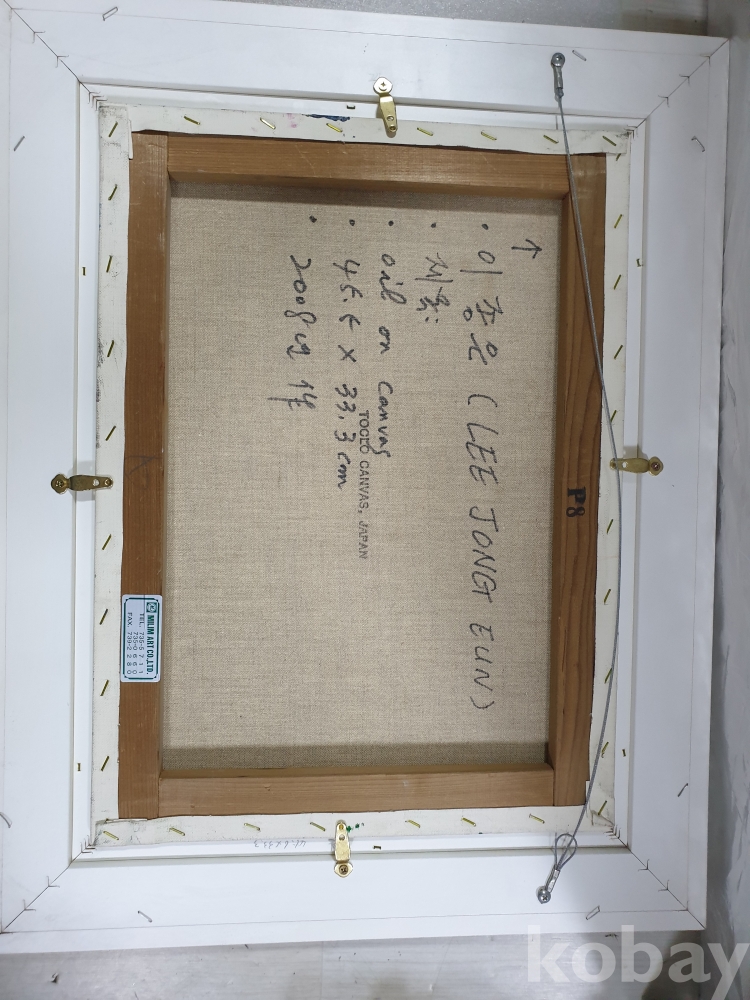 • 이종은 (LEE JONG EUN)
• 제목:
• oil on canvas
• 45.5 × 33.3 cm
• 2008년 作
CANVAS, JAPAN
P8
MILIM ART CO., LTD.
TEL.
735-0660
FAX. 739-2280
kobay